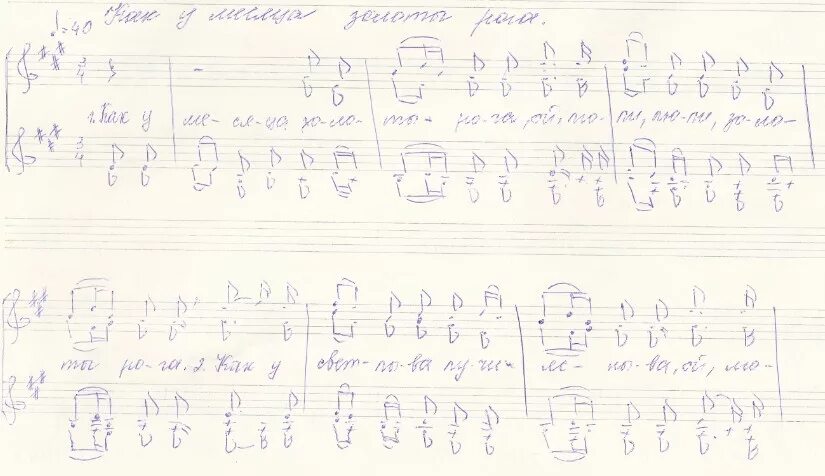 ♩=40 Как у месяца золоты рога.
1. Как у ме- ся-ца зо-ло- ты- ро-га, ой, лю- ли, лю-ли, зо-ло-
ты ро-га. 2. Как у свет- ло-ва лу-чи- ле- но-ва, ой, лю-